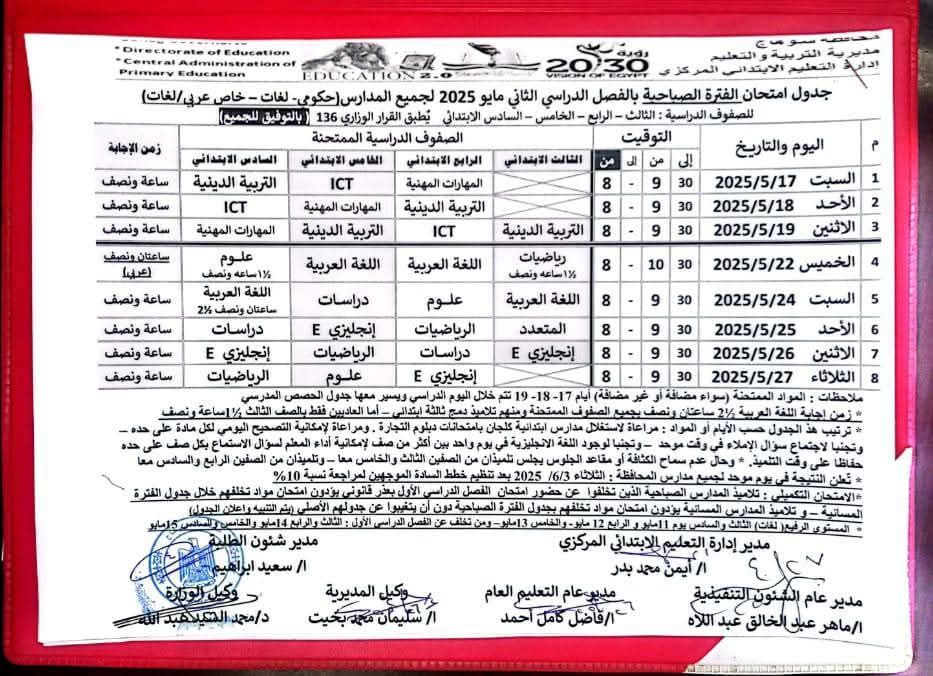 محافظة سوهاج
مديرية التربية والتعليم
إدارة التعليم الابتدائي المركزي
رؤية
2030
VISION OF EGYPT
EDUCATION 2.0
* Directorate of Education
* Central Administration of
Primary Education
جدول امتحان الفترة الصباحية بالفصل الدراسي الثاني مايو 2025 لجميع المدارس (حكومي- لغات – خاص عربي/لغات)
للصفوف الدراسية : الثالث – الرابع – الخامس – السادس الابتدائي يُطبق القرار الوزاري 136 (بالتوفيق للجميع)
م اليوم والتاريخ التوقيت الصفوف الدراسية الممتحنة زمن الإجابة
إلى من إلى من الثالث الابتدائي الرابع الابتدائي الخامس الابتدائي السادس الابتدائي
1 السبت 2025/5/17 30 9 - 8 المهارات المهنية ICT التربية الدينية ساعة ونصف
2 الأحد 2025/5/18 30 9 - 8 التربية الدينية المهارات المهنية ICT ساعة ونصف
3 الاثنين 2025/5/19 30 9 - 8 التربية الدينية ICT التربية الدينية المهارات المهنية ساعة ونصف
4 الخميس 2025/5/22 30 10 - 8 رياضيات ½1 ساعه ونصف اللغة العربية اللغة العربية علوم ½1 ساعه ونصف ساعتان ونصف (عربي)
5 السبت 2025/5/24 30 9 - 8 اللغة العربية علوم دراسات اللغة العربية ساعتان ونصف ½2 ساعة ونصف
6 الأحد 2025/5/25 30 9 - 8 المتعدد الرياضيات إنجليزي E دراسات ساعة ونصف
7 الاثنين 2025/5/26 30 9 - 8 إنجليزي E دراسات الرياضيات إنجليزي E ساعة ونصف
8 الثلاثاء 2025/5/27 30 9 - 8 إنجليزي E علوم الرياضيات ساعة ونصف
ملاحظات : المواد الممتحنة (سواء مضافة أو غير مضافة) أيام 17- 18- 19 تتم خلال اليوم الدراسي ويسير معها جدول الحصص المدرسي
* زمن إجابة اللغة العربية ½2 ساعتان ونصف بجميع الصفوف الممتحنة ومنهم تلاميذ دمج ثالثة ابتدائي – أما العاديين فقط بالصف الثالث ½1ساعة ونصف
* ترتيب هذ الجدول حسب الأيام أو المواد : مراعاة لاستغلال مدارس ابتدائية كلجان بامتحانات دبلوم التجارة . ومراعاة لإمكانية التصحيح اليومي لكل مادة على حده –
وتجنبا لاجتماع سؤال الإملاء في وقت موحد – وتجنبا لوجود اللغة الانجليزية في يوم واحد بين أكثر من صف لإمكانية أداء المعلم لسؤال الاستماع بكل صف على حده
حفاظا على وقت التلميذ. * وحال عدم سماح الكثافة أو مقاعد الجلوس يجلس تلميذان من الصفين الثالث والخامس معا – وتلميذان من الصفين الرابع والسادس معا
* تُعلن النتيجة في يوم موحد لجميع مدارس المحافظة : الثلاثاء 6/3/ 2025 بعد تنظيم خطط السادة الموجهين لمراجعة نسبة 10%
*الامتحان التكميلي : تلاميذ المدارس الصباحية الذين تخلفوا عن حضور امتحان الفصل الدراسي الأول بعذر قانوني يؤدون امتحان مواد تخلفهم خلال جدول الفترة
المسائية – و تلاميذ المدارس المسائية يؤدون امتحان مواد تخلفهم بجدول الفترة الصباحية دون أن يتغيبوا عن جدولهم الأصلي (يتم التنبيه واعلان الجدول)
* المستوى الرفيع( لغات) الثالث والسادس يوم 11مايو و الرابع 12 مايو- والخامس 13مايو– ومن تخلف عن الفصل الدراسي الأول : الثالث والرابع 14مايو والخامس والسادس 15مايو
مدير إدارة التعليم الابتدائي المركزي
ا/ أيمن محمد بدر
مدير شئون الطلبة
ا/ سعيد ابراهيم
مدير عام الشئون التنفيذية
ا/ماهر عبد الخالق عبد اللاه
مدير عام التعليم العام
ا/فاضل كامل أحمد
وكيل المديرية
ا/ سليمان محمد بخيت
وكيل الوزارة
د/محمد السيد عبد الله